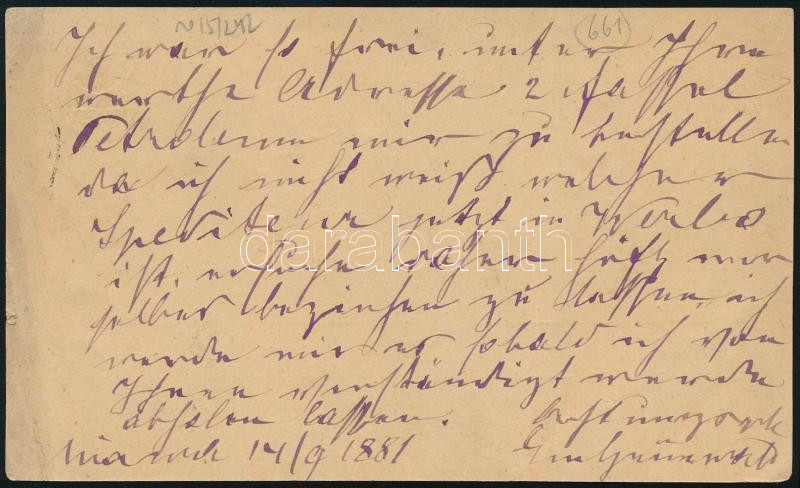 N 15/242
661
Ich war so frei, unter Ihre
werthe Adresse 2 Fassel
Petroleum mir zu bestellen
da ich nicht weiß welcher
Spediteur jetzt in Werbo
ist, ersuche daher höfl. mir
selbes beziehen zu lassen, ich
werde mir es sobald ich von
Ihnen verständigt werde
abholen lassen. Achtungsvoll
14/9 1881
darabanth